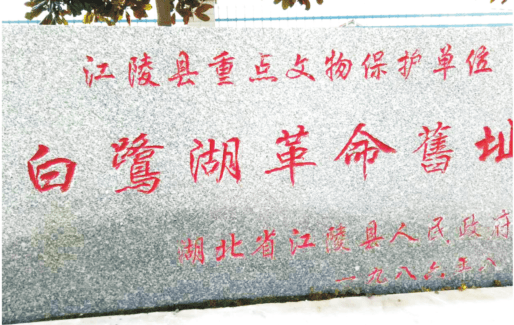 江陵县重点文物保护单位
白鹭湖革命舊址
湖北省江陵县人民政府
一九八六年八